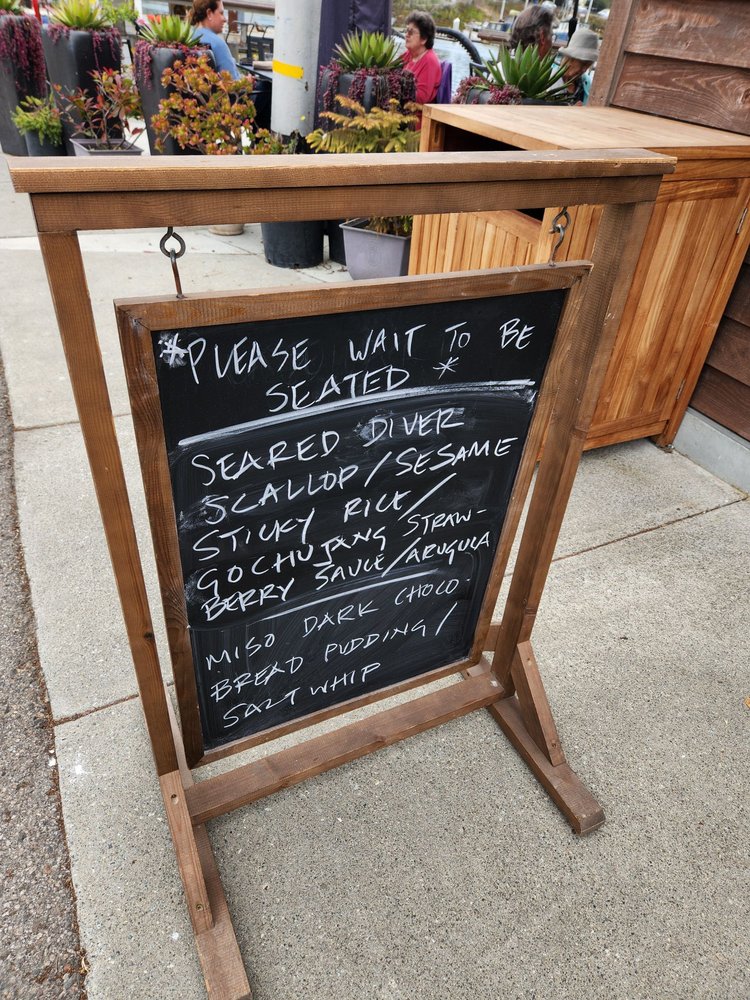 *PLEASE WAIT TO BE
SEATED *
SEARED DIVER
SCALLOP/SESAME
STICKY RICE/
GOCHUJANG STRAW-
BERRY SAUCE/ARUGULA
MISO DARK CHOCO-
BREAD PUDDING/
SALT WHIP